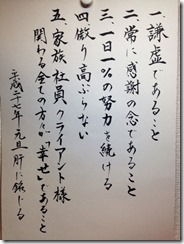 一、謙虚であること
二、常に感謝の念であること
三、一日一%の努力を続ける
四、傲り高ぶらない
五、家族、社員、クライアント様
関わる全ての方々が“幸せ”であること
平成二十七年 元旦 肝に銘じる